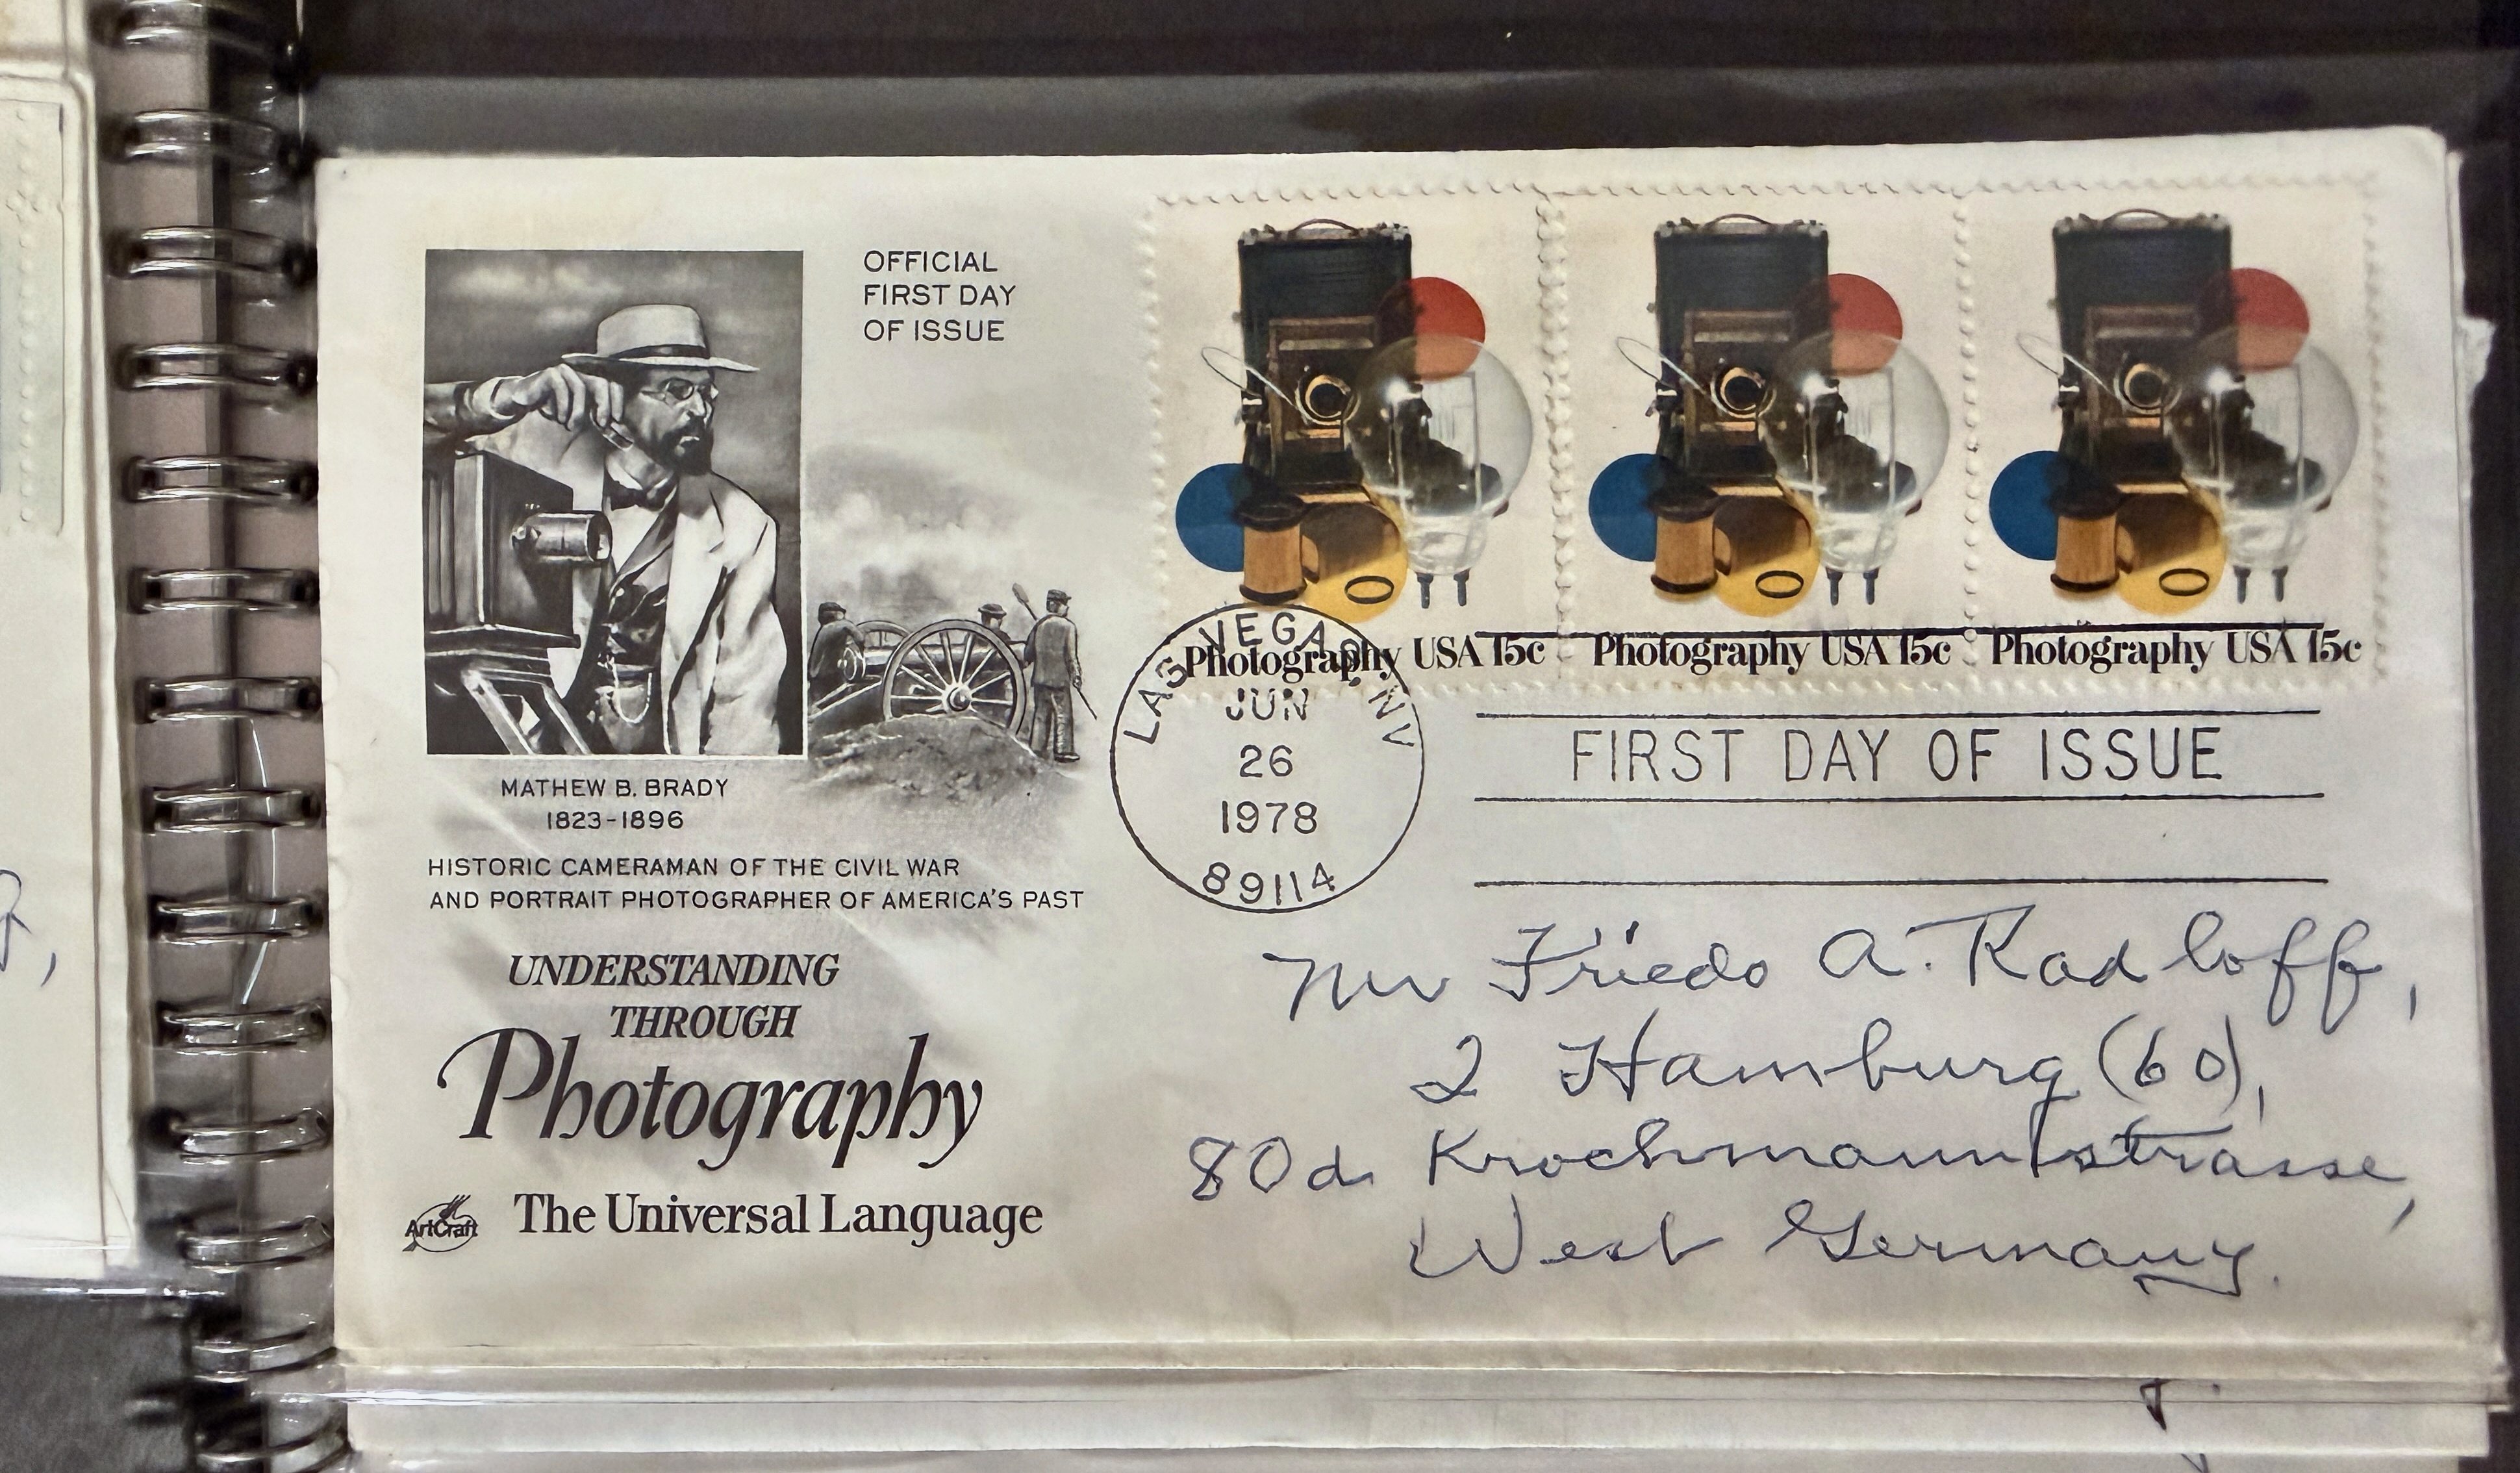 OFFICIAL
FIRST DAY
OF ISSUE
MATHEW B. BRADY
1823-1896
HISTORIC CAMERAMAN OF THE CIVIL WAR
AND PORTRAIT PHOTOGRAPHER OF AMERICA'S PAST
UNDERSTANDING
THROUGH
Photography
The Universal Language
ArtCraft
Photography USA 15c
Photography USA 15c
Photography USA 15c
LAS VEGAS, NV
JUN
26
1978
89114
FIRST DAY OF ISSUE
Mr Friedo A. Radloff,
2 Hamburg (60),
80d Krochmannstrasse,
West Germany.